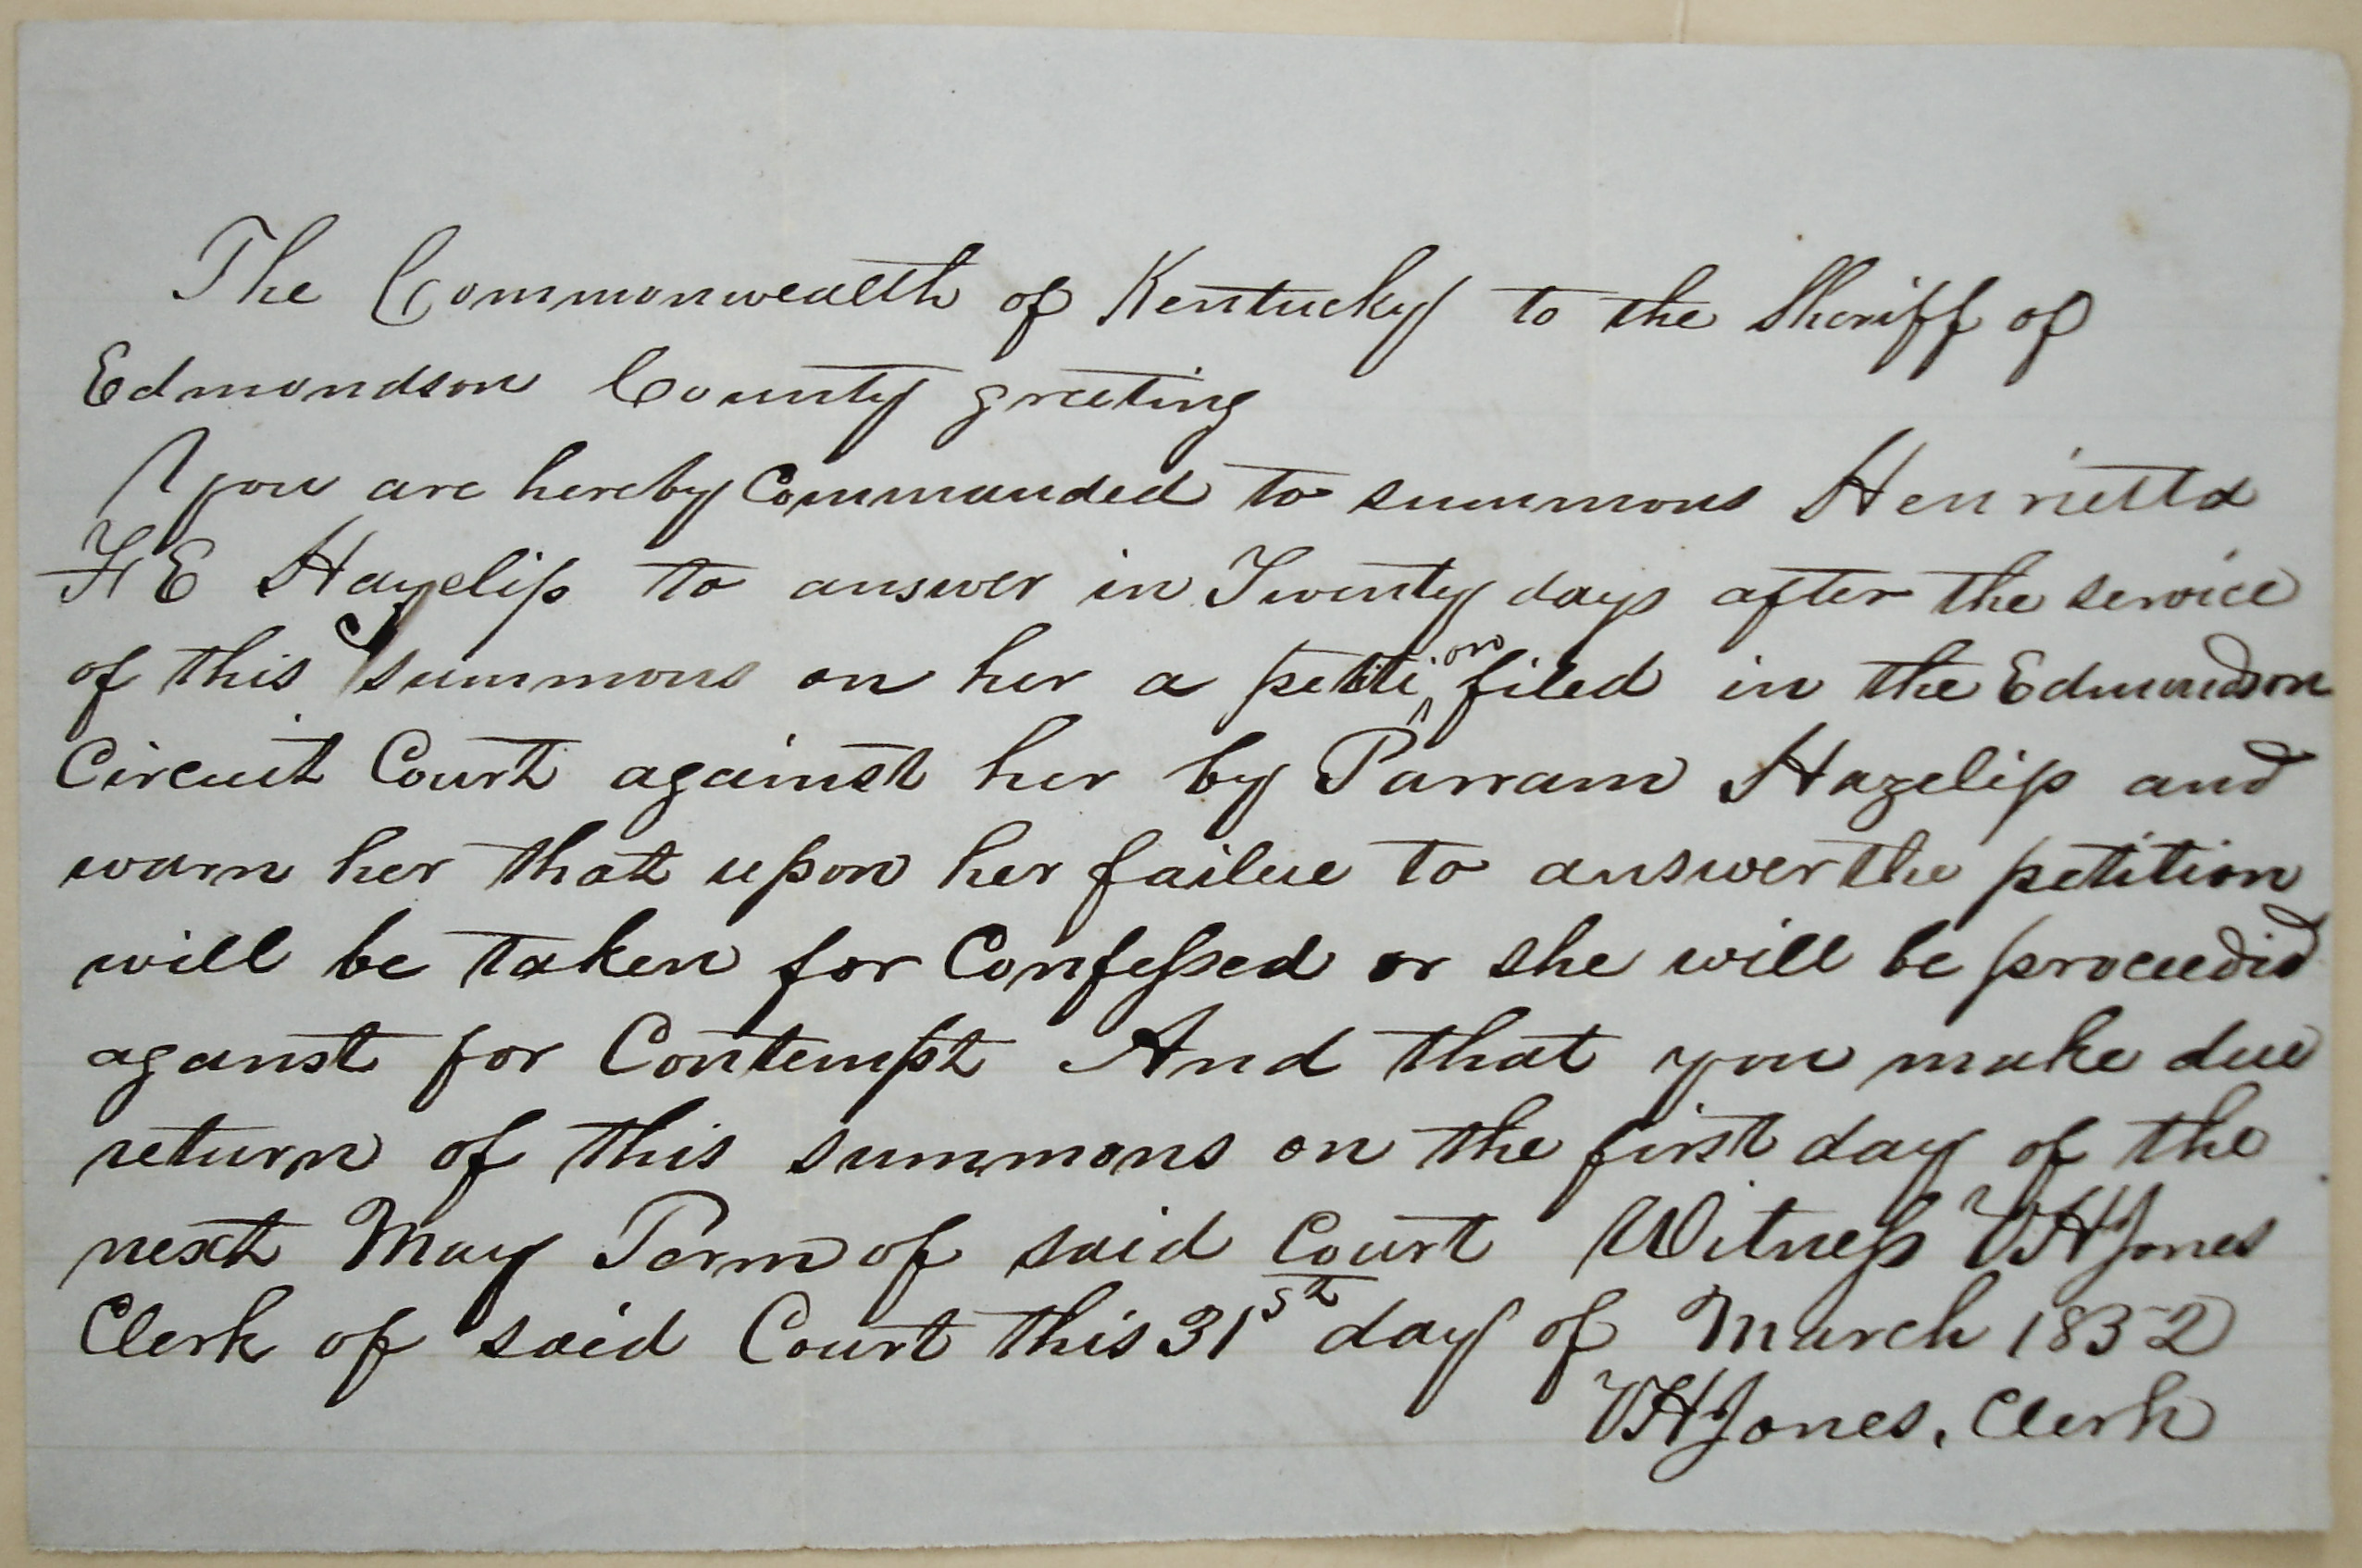 The Commonwealth of Kentucky to the Sheriff of
Edmondson County greeting
You are hereby Commanded to summons Henrietta
F E Hazelip to answer in Twenty days after the service
of this summons on her a petition filed in the Edmondson
Circuit Court against her by Parram Hazelip and
warn her that upon her failue to answer the petition
will be taken for Confessed or she will be proceedid
aganst for Contempt And that you make due
return of this summons on the first day of the
next May Term of said Court Witness VHJones
Clerk of said Court this 31st day of March 1852
VHJones, Clerk